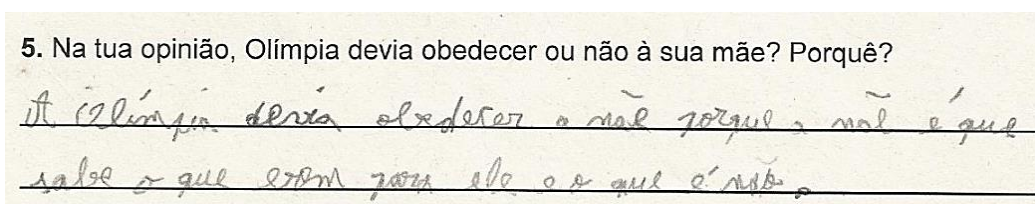 5. Na tua opinião, Olímpia devia obedecer ou não à sua mãe? Porquê?
A Olímpia devia obedecer a mãe porque a mãe é que
sabe o que bom para ela e o que é não.